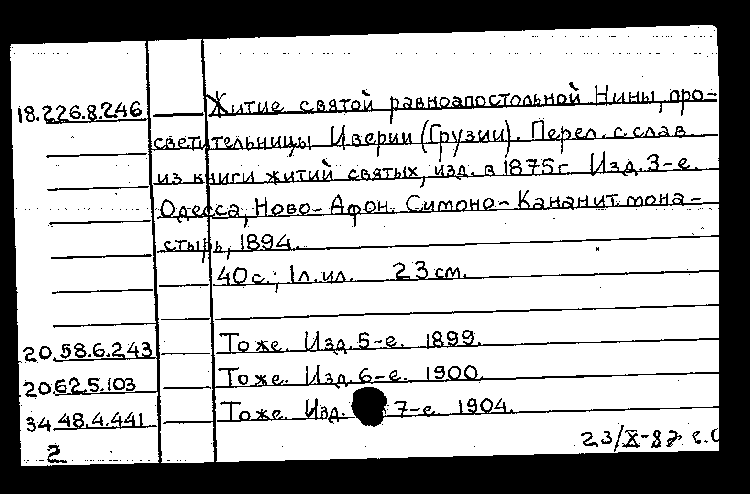 18.226.8.246 Житие святой равноапостольной Нины, про-
светительницы Иверии (Грузии). Перел. с слав.
из книги житий святых, изд. в 1875 г. Изд. 3-е.
Одесса, Ново-Афон. Симоно-Кананит. мона-
стырь, 1894.
40 с.; 1 л. ил. 23 см.
20.58.6.243 То же. Изд. 5-е. 1899.
20.62.5.103 То же. Изд. 6-е. 1900.
34.48.4.441 То же. Изд. 7-е. 1904.
2 23/X-87